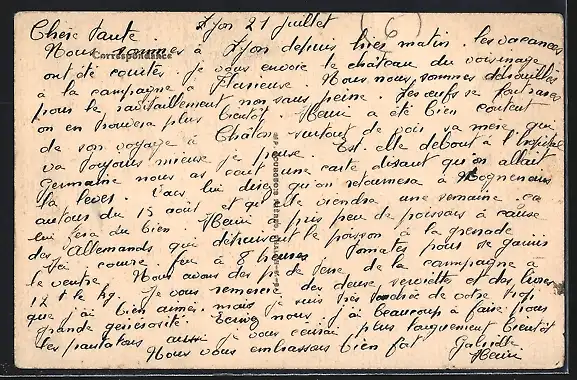 Lyon 21 juillet
Chère Tante
Nous sommes à Lyon depuis hier matin. les vacances
Correspondance
ont été courtes. je vous envoie le château du voisinage
à la campagne à Fleurieux. Nous nous sommes débrouillés
pour le ravitaillement non sans peine. Les œufs se font rares
on en trouvera plus bientôt. Henri a été bien content
de son voyage à Châlon surtout de voir sa mère qui
va toujours mieux je pense. Est-elle debout à l'hôpital
Germaine nous a écrit une carte disant qu'on allait
la lever. Vous lui direz qu'on retournera à
autour du 15 août et qu'elle viendra une semaine ça
lui fera du bien. Henri a pris peu de poissons à cause
des Allemands qui détruisent le poisson à la grenade
J'ai couru feu à 8 heures tomates pour se garnir
le ventre. Nous avons des p. de terre de la campagne à
12 f le kg. Je vous remercie des deux serviettes et des livres
que j'ai bien aimés mais je suis très touchée de votre trop
grande générosité. Ecrivez nous. j'ai beaucoup à faire pour
les pantalons aussi je vous écrirai plus longuement bientôt
Nous vous embrassons bien fort
Henri